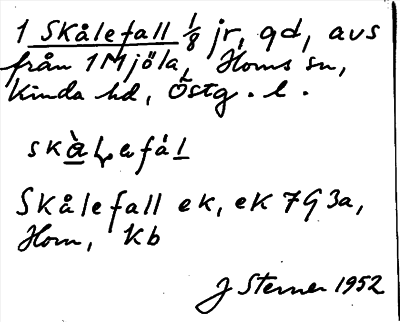 1 Skålefall 1/8 jr, gd, avs
från 1 Mjöla, Horns sn,
Kinda hd, Östg. l.
skὰ̲Lefàl̲
Skålefall ek, ek 7G 3a,
Horn, Kb
J Sterner 1952